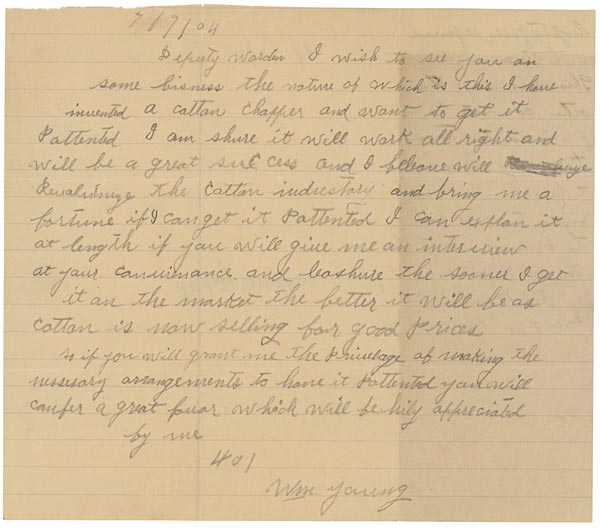 7/9/04
Deputy Warden I wish to see you on
some bisness the nature of which is this I have
invented a cottan chapper and want to get it
Pattented I am shure it will work all right and
will be a great suc cess and I beleave will
Revalusnege the cattan industary and bring me a
fortune if I can get it Pattented I can explan it
at length if you will give me an interview
at your canvinance and leashure the sooner I get
it on the markat the better it will be as
cottan is now selling for good Prices
so if you will grant me the Privelage of making the
nessisary arrangements to have it Pattented you will
canfer a great favar which will be hily appreciated
by me
401
Wm Young